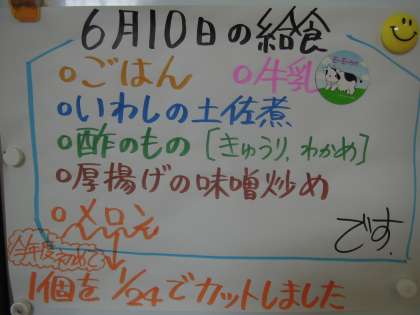 6月10日の給食
○ごはん ○牛乳
○いわしの土佐煮
○酢のもの[きゅうり、わかめ]
○厚揚げの味噌炒め
○メロン
です.
今年度初めて
1個を1/24でカットしました